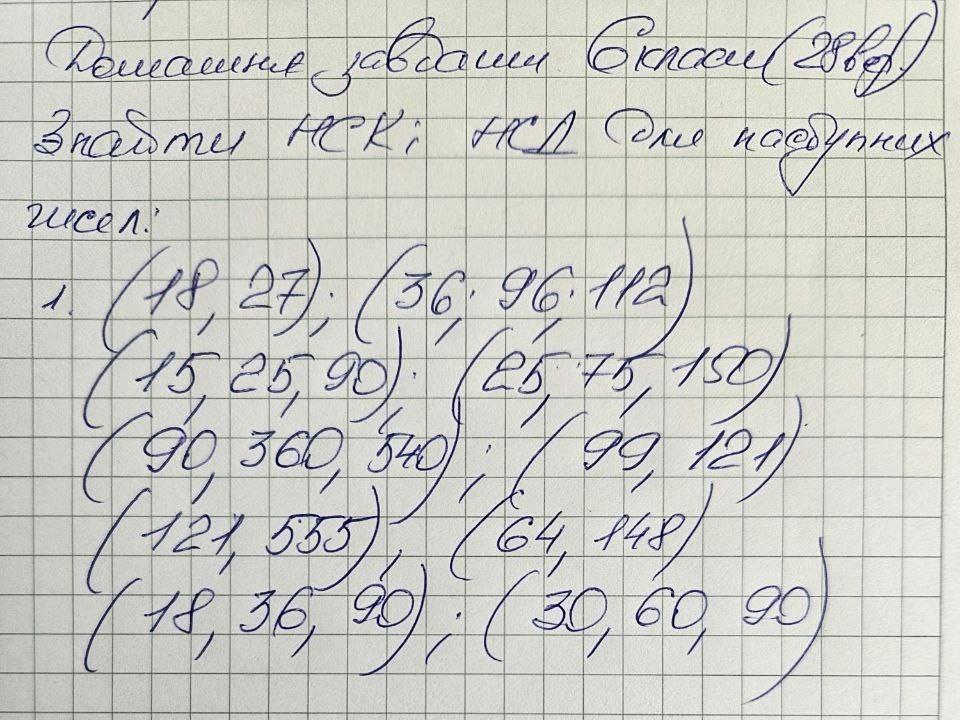 Домашнє завдання 6 класи (28 вер.)
Знайти НСК і НСД для наступних
чисел:
1. (18, 27); (36; 96; 112)
(15, 25, 90); (25, 75, 150)
(90, 360, 540); (99, 121)
(121, 555); (64, 148)
(18, 36, 90); (30, 60, 90)